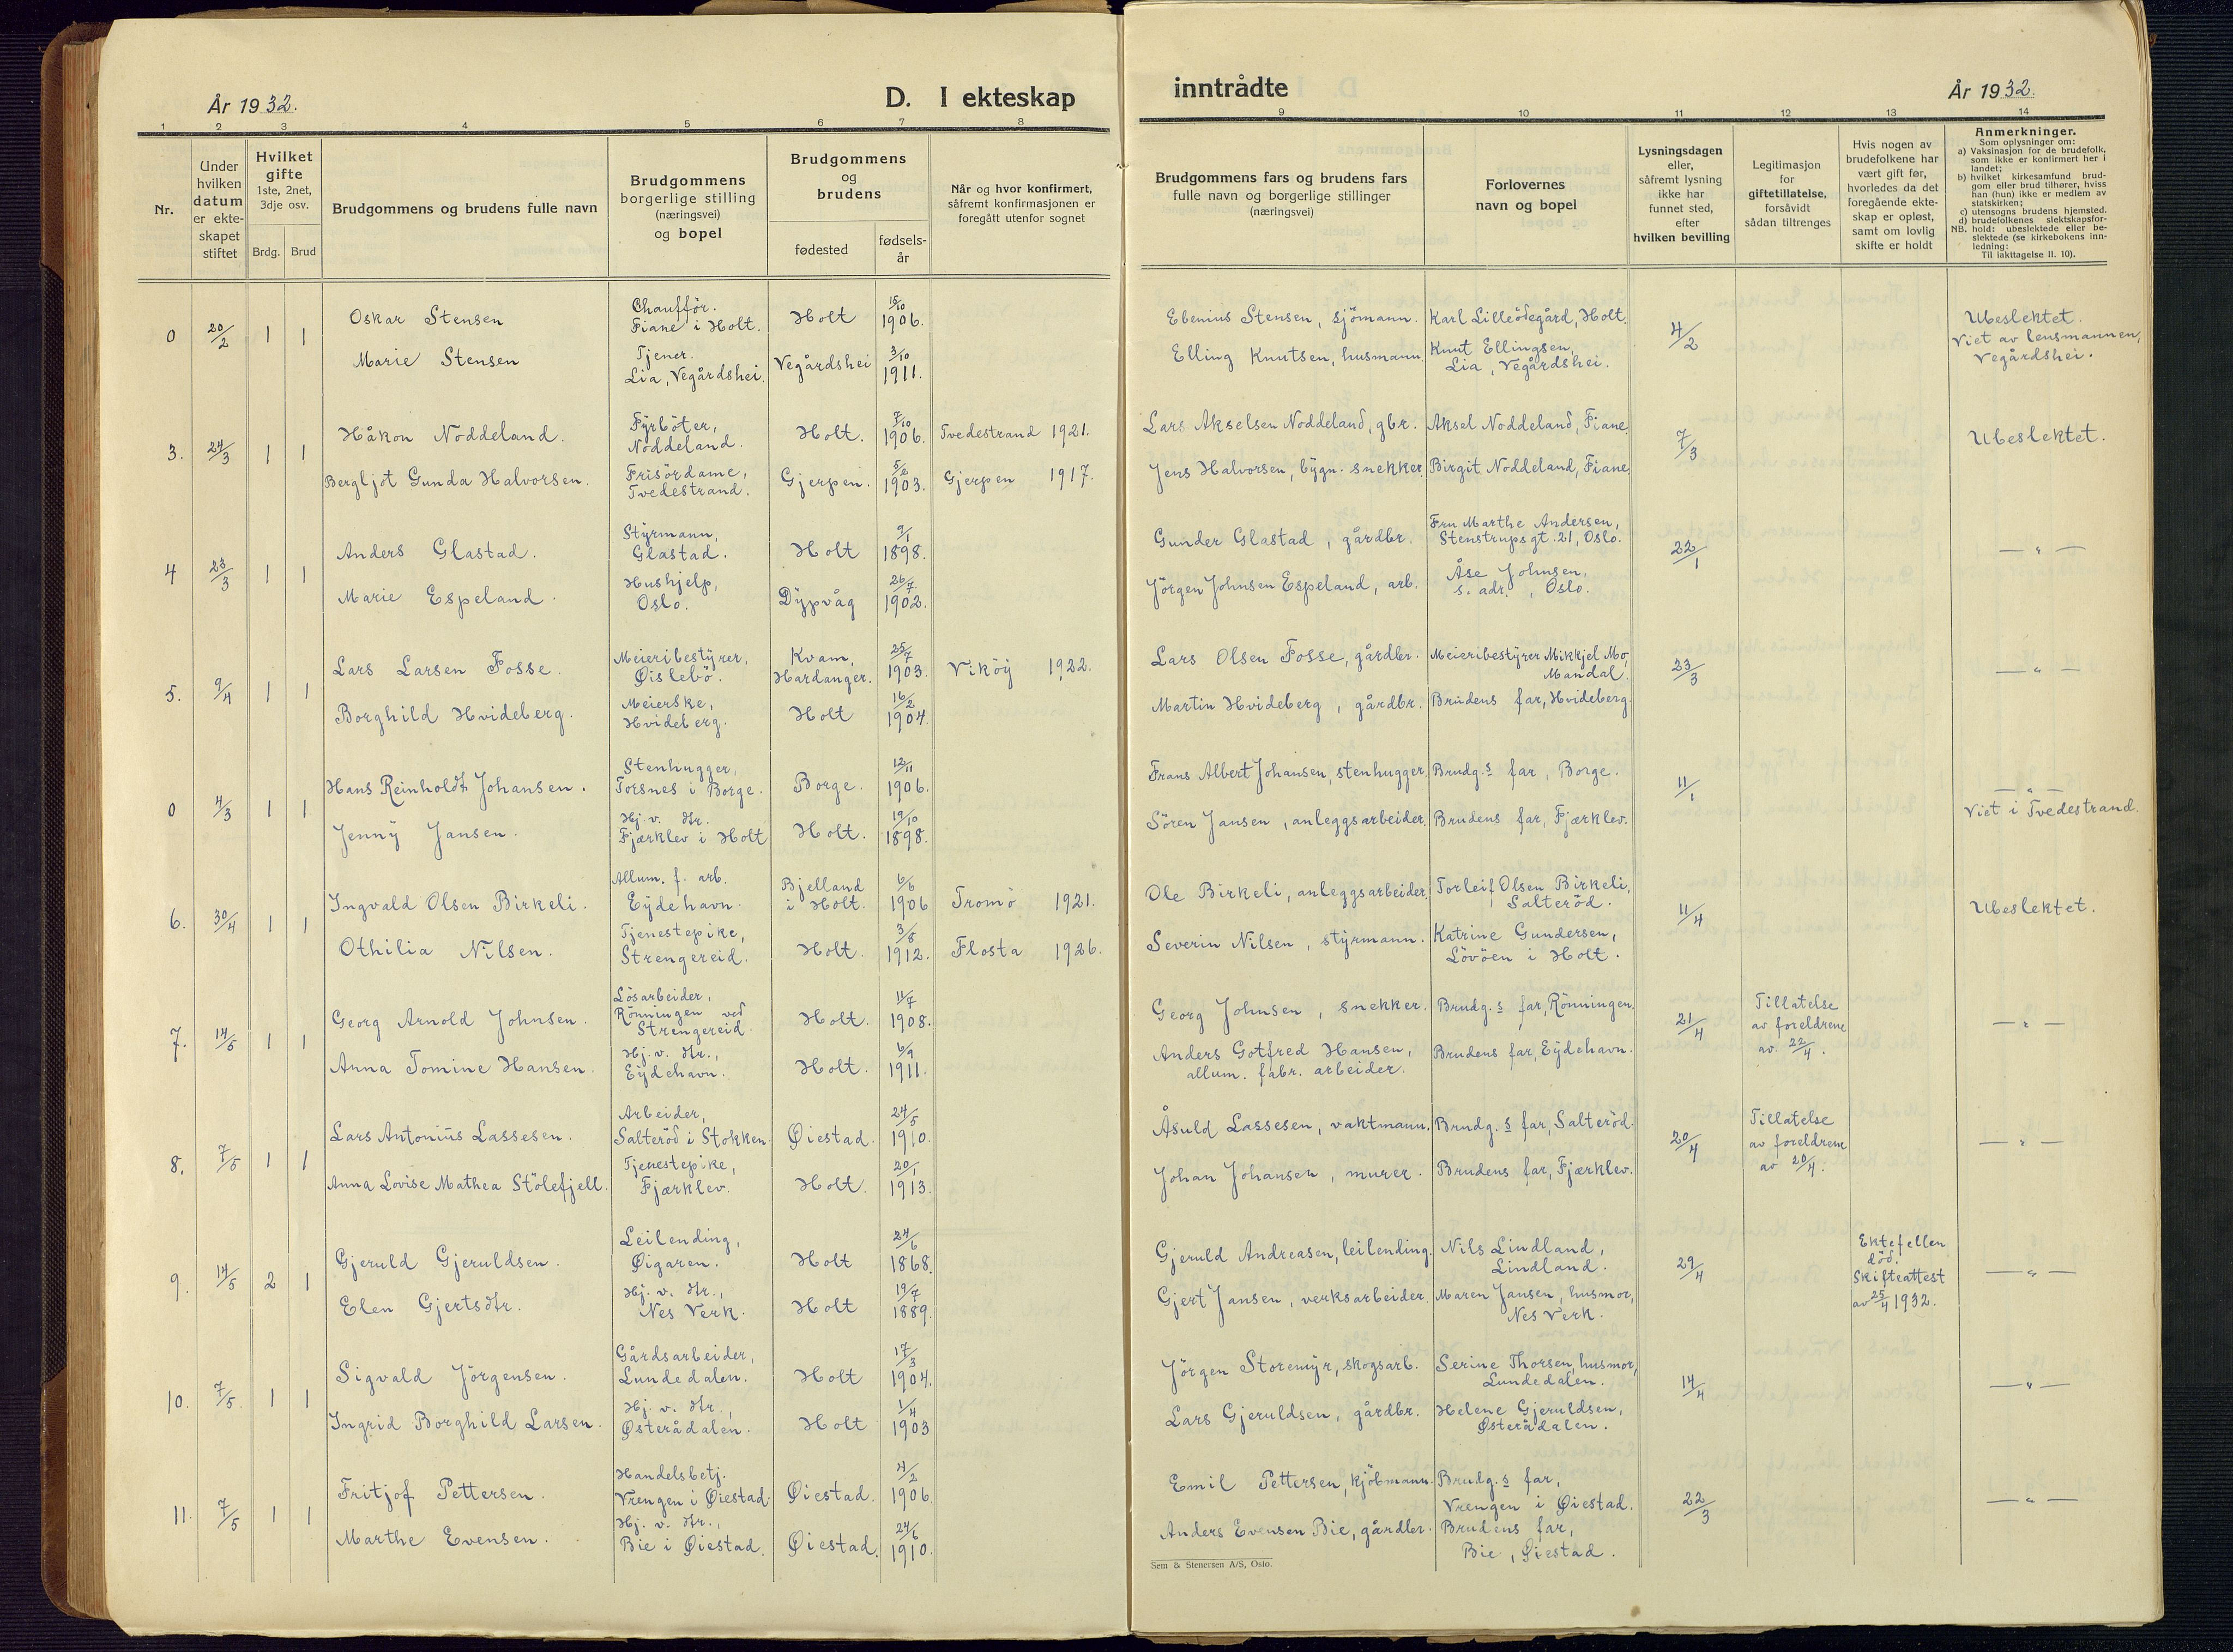 År 1932.
D. I ekteskap
inntrådte
År 1932.
1 2 3 4 5 6 7 8 9 10 11 12 13 14
Nr.
Under
hvilken
datum
er ekte-
skapet
stiftet
Hvilket
gifte
1ste, 2net,
3dje osv.
Brdg. Brud
Brudgommens og brudens fulle navn
Brudgommens
borgerlige stilling
(næringsvei)
og bopel
Brudgommens
og
brudens
fødested
fødsels-
år
Når og hvor konfirmert,
såfremt konfirmasjonen er
foregått utenfor sognet
Brudgommens fars og brudens fars
fulle navn og borgerlige stillinger
(næringsvei)
Forlovernes
navn og bopel
Lysningsdagen
eller,
såfremt lysning
ikke har
funnet sted,
efter
hvilken bevilling
Legitimasjon
for
giftetillatelse,
forsåvidt
sådan tiltrenges
Hvis nogen av
brudefolkene har
vært gift før,
hvorledes da det
foregående ekte-
skap er opløst,
samt om lovlig
skifte er holdt
Anmerkninger.
Som oplysninger om:
a) Vaksinasjon for de brudefolk,
som ikke er konfirmert her i
landet;
b) hvilket kirkesamfund brud-
gom eller brud tilhører, hviss
han (hun) ikke er medlem av
statskirken;
c) utensogns brudens hjemsted.
d) brudefolkenes slektskapsfor-
NB. hold: ubeslektede eller be-
slektede (se kirkebokens inn-
ledning:
Til iakttagelse II. 10).
0 20/2 1 1
Oskar Stensen
Chauffør.
Fiane i Holt.
Holt
15/10
1906.
Ebenius Stensen, sjömann.
Karl Lilleödegård, Holt.
4/2
Ubeslektet.
Viet av lensmannen,
Vegårdshei.
Marie Stensen
Tjener.
Lia, Vegårdshei.
Vegårdshei
3/10
1911.
Elling Knutsen, husmann.
Knut Ellingsen,
Lia, Vegårdshei.
3. 24/3 1 1
Håkon Noddeland.
Fyrböter,
Noddeland.
Holt.
7/10
1906.
Tvedestrand 1921.
Lars Akselsen Noddeland, gbr.
Aksel Noddeland, Fiane.
7/3
Ubeslektet.
Bergljot Gunda Halvorsen.
Frisördame,
Tvedestrand.
Gjerpen.
5/2
1903.
Gjerpen 1917.
Jens Halvorsen, bygn. snekker.
Birgit Noddeland, Fiane.
4 28/3 1 1
Anders Glastad.
Styrmann,
Glastad.
Holt
9/1
1898.
Gunder Glastad, gårdbr.
Fru Marthe Andersen,
Stenstrupsgt. 21, Oslo.
22/1
— " —
Marie Espeland.
Hushjelp,
Oslo.
Dypvåg
26/7
1902.
Jörgen Johnsen Espeland, arb.
Åse Johnsen,
s. adr., Oslo.
5. 9/4 1 1
Lars Larsen Fosse.
Meieribestyrer,
Øislebö.
Kvam,
Hardanger.
25/7
1903.
Viköy 1922.
Lars Olsen Fosse, gårdbr.
Meieribestyrer Mikkjel Mo,
Mandal.
23/3
— " —
Borghild Hvideberg.
Meierske,
Hvideberg.
Holt
16/2
1904.
Martin Hvideberg, gårdbr.
Brudens far, Hvideberg.
0 4/3 1 1
Hans Reinholdt Johansen.
Stenhugger,
Torsnes i Borge.
Borge.
12/11
1906.
Frans Albert Johansen, stenhugger.
Brudg.s far, Borge.
11/1
— " —
Viet i Tvedestrand.
Jenny Jansen.
Hj. v. dtr.
Fjærklev i Holt
Holt.
19/10
1898.
Sören Jansen, anleggsarbeider.
Brudens far, Fjærklev.
6. 30/4 1 1
Ingvald Olsen Birkeli.
Allum. f. arb.
Eydehavn.
Bjelland
i Holt.
6/6
1906
Tromö 1921.
Ole Birkeli, anleggsarbeider.
Torleif Olsen Birkeli,
Salteröd.
11/4
Ubeslektet.
Othilia Nilsen.
Tjenestepike,
Strengereid.
Holt.
3/8
1912.
Flosta 1926.
Severin Nilsen, styrmann.
Katrine Gundersen,
Lövöen i Holt.
7. 14/5 1 1
Georg Arnold Johnsen.
Lösarbeider,
Rönningen ved
Strengereid.
Holt.
11/7
1908.
Georg Johnsen, snekker.
Brudg.s far, Rönningen.
21/4
Tillatelse
av foreldrene
av 22/4.
— " —
Anna Tomine Hansen.
Hj. v. dtr.,
Eydehavn.
Holt.
6/9
1911.
Anders Gotfred Hansen,
allum. fabr. arbeider.
Brudens far, Eydehavn.
8. 7/5 1 1
Lars Antonius Lassesen.
Arbeider,
Salteröd i Stokken.
Øiestad.
24/5
1910.
Åsuld Lassesen, vaktmann.
Brudg.s far, Salteröd.
20/4
Tillatelse
av foreldrene
av 20/4.
— " —
Anna Lovise Mathea Stölefjell.
Tjenestepike,
Fjærklev.
Holt.
20/1
1913.
Johan Johansen, murer.
Brudens far, Fjærklev.
9. 14/5 2 1
Gjeruld Gjeruldsen.
Leilending,
Øigaren.
Holt
24/6
1868.
Gjeruld Andreasen, leilending.
Nils Lindland,
Lindland.
29/4
Ektefellen
död.
Skifteattest
av 25/4 1932.
— " —
Elen Gjertsdtr.
Hj. v. dtr.,
Nes Verk.
Holt
19/7
1889.
Gjert Jansen, verksarbeider.
Maren Jansen, husmor,
Nes Verk.
10. 7/5. 1 1
Sigvald Jörgensen.
Gårdsarbeider,
Lundedalen.
Holt
17/3
1904.
Jörgen Storemyr, skogsarb.
Serine Thorsen, husmor,
Lundedalen.
14/4
— " —
Ingrid Borghild Larsen.
Hj. v. dtr.,
Østerådalen.
Holt
1/4
1903
Lars Gjeruldsen, gårdbr.
Helene Gjeruldsen,
Østerådalen.
11. 7/5 1 1
Fritjof Pettersen.
Handelsbetj.
Vrengen i Øiestad.
Øiestad.
4/2
1906.
Emil Pettersen, kjöbmann.
Brudg.s far,
Vrengen i Øiestad.
22/3
— " —
Marthe Evensen.
Hj. v. dtr.,
Bie i Øiestad.
Øiestad.
24/6
1910.
Anders Evensen Bie, gårdbr.
Brudens far,
Bie, Øiestad.
Sem & Stenersen A/S, Oslo.